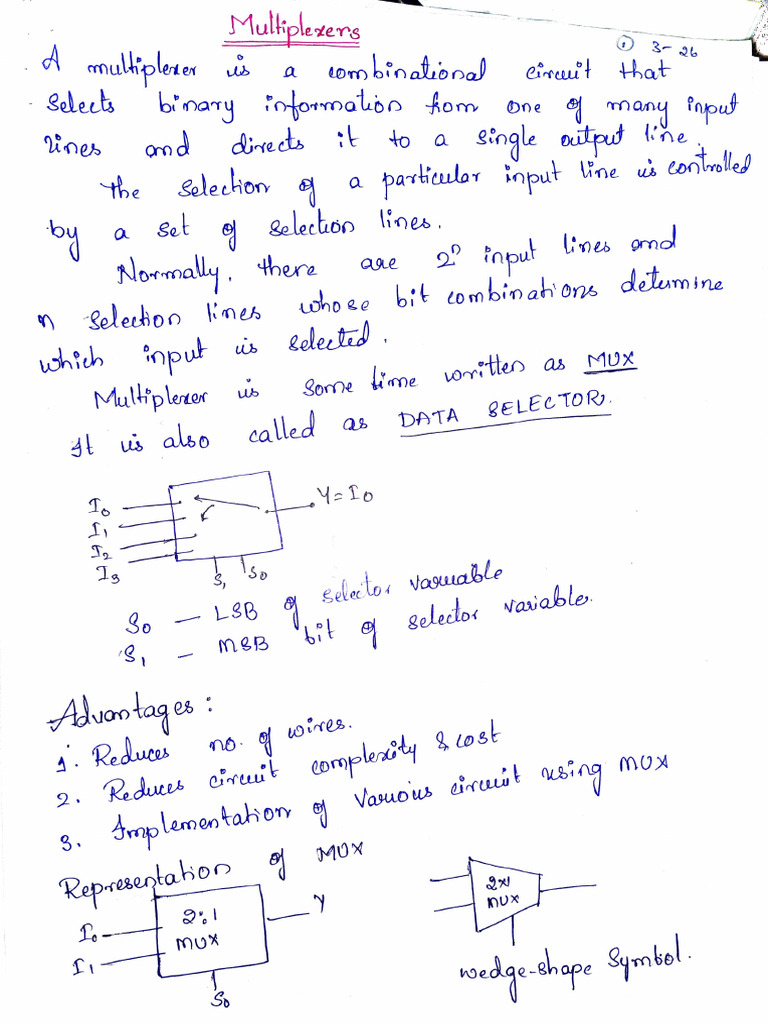 Multiplexers
① 3-26
A multiplexer is a combinational circuit that
selects binary information from one of many input
lines and directs it to a single output line.
The selection of a particular input line is controlled
by a set of selection lines.
Normally, there are 2ⁿ input lines and
n selection lines whose bit combinations determine
which input is selected.
Multiplexer is some time written as MUX
It is also called as DATA SELECTOR.
I₀
I₁
I₂
I₃
Y = I₀
S₁ S₀
S₀ — LSB of selector variable
S₁ — MSB bit of selector variable.
Advantages :
1. Reduces no. of wires.
2. Reduces circuit complexity & cost
3. Implementation of various circuit using MUX
Representation of MUX
I₀
I₁
2:1
MUX
Y
S₀
2x1
MUX
wedge-shape symbol.